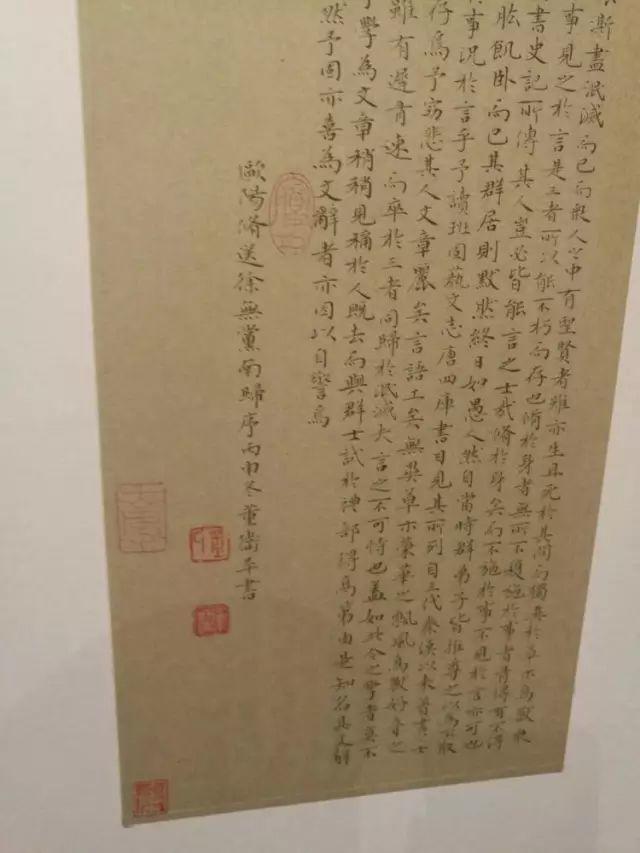 澌盡泯滅而已而眾人之中有聖賢者雖亦生且死於其間而獨異於草木鳥獸眾
事見之於言是三者所以能不朽而存也脩於身者無所不獲施於事者有得有不得
書史記所傳其人豈必皆能言之士哉脩於身矣而不施於事不見於言亦可也
肱飢卧而已其群居則默然終日如愚人然自當時群弟子皆推尊之以為不敢
事況於言乎予讀班固藝文志唐四庫書目見其所列自三代秦漢以來著書之士
存焉予竊悲其人文章麗矣言語工矣無異草木榮華之飄風鳥獸好音之
雖有遲有速而卒於三者同歸於泯滅夫言之不可恃也蓋如此今之學者莫不
學為文章稍稍見稱於人既去而與群士試於禮部得高第由是知名其文辭
然予固亦喜為文辭者亦因以自警焉
歐陽脩送徐無黨南歸序丙申冬董書